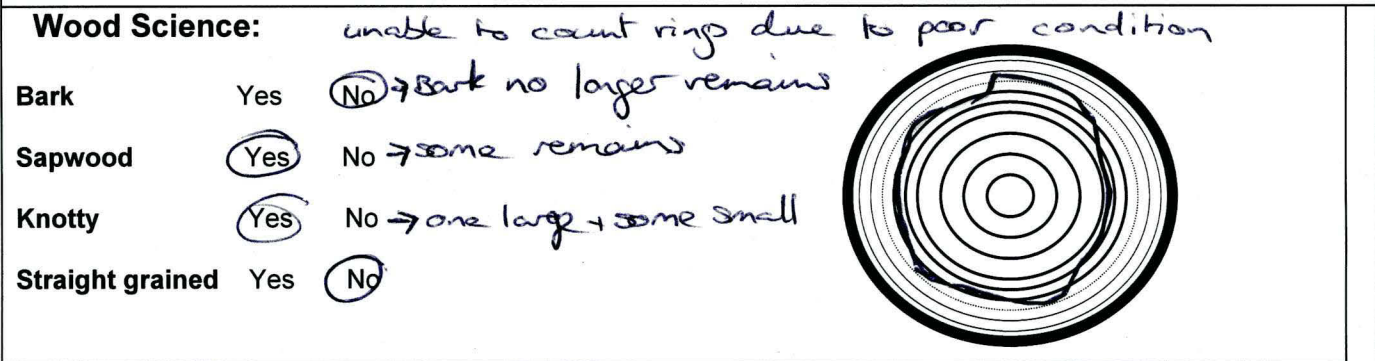 Wood Science: unable to count rings due to poor condition
Bark Yes No → Bark no longer remains
Sapwood Yes No → some remains
Knotty Yes No → one large + some small
Straight grained Yes No